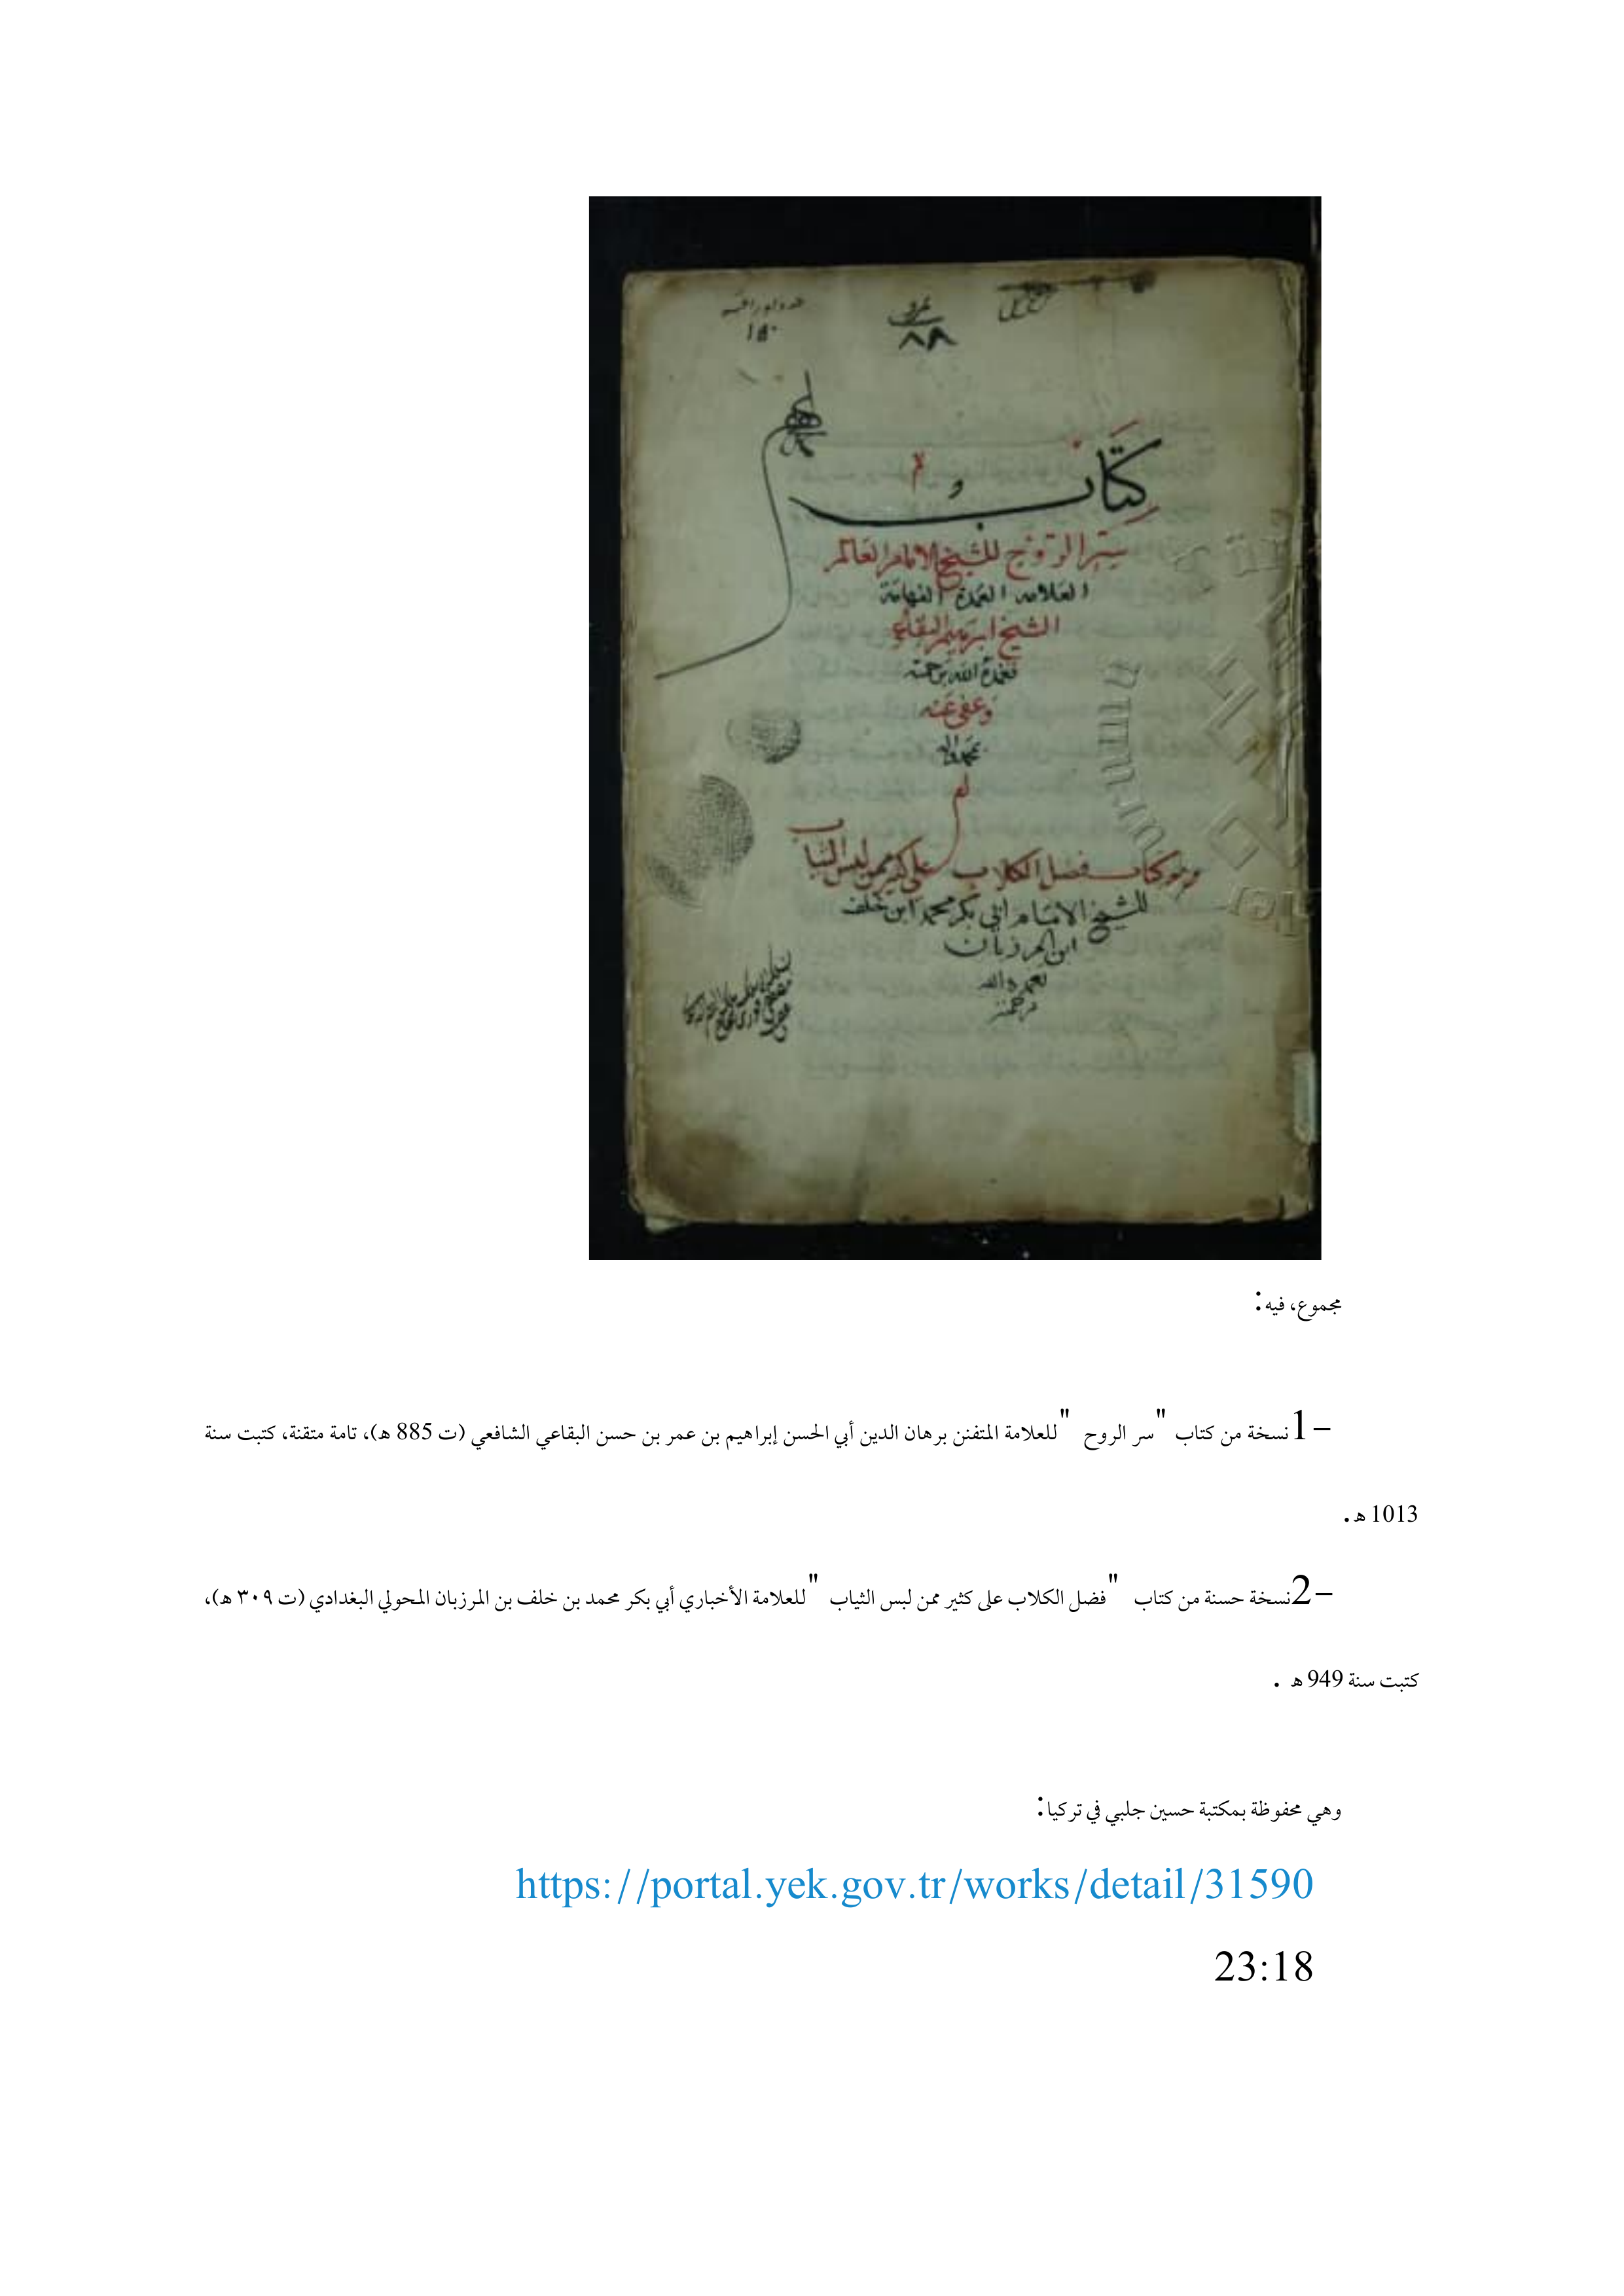 نمرو
٨٨
١٥٠
كتاب
و
سر الروح للشيخ الامام العالم
العلامه العمدة الفهامة
الشيخ ابرهيم البقاعي
تغمده الله برحمته
وعفى عنه
بمحمد واله
وهو كتاب فضل الكلاب على كثير ممن لبس الثياب
للشيخ الامام ابي بكر محمد ابن خلف
ابن المرزبان
تغمده الله
برحمته
مجموع، فيه:
1– نسخة من كتاب "سر الروح" للعلامة المتفنن برهان الدين أبي الحسن إبراهيم بن عمر بن حسن البقاعي الشافعي (ت 885 هـ)، تامة متقنة، كتبت سنة
1013 هـ.
2– نسخة حسنة من كتاب "فضل الكلاب على كثير ممن لبس الثياب" للعلامة الأخباري أبي بكر محمد بن خلف بن المرزبان المحولي البغدادي (ت ٣٠٩ هـ)،
كتبت سنة 949 هـ .
وهي محفوظة بمكتبة حسين جلبي في تركيا:
https://portal.yek.gov.tr/works/detail/31590
23:18